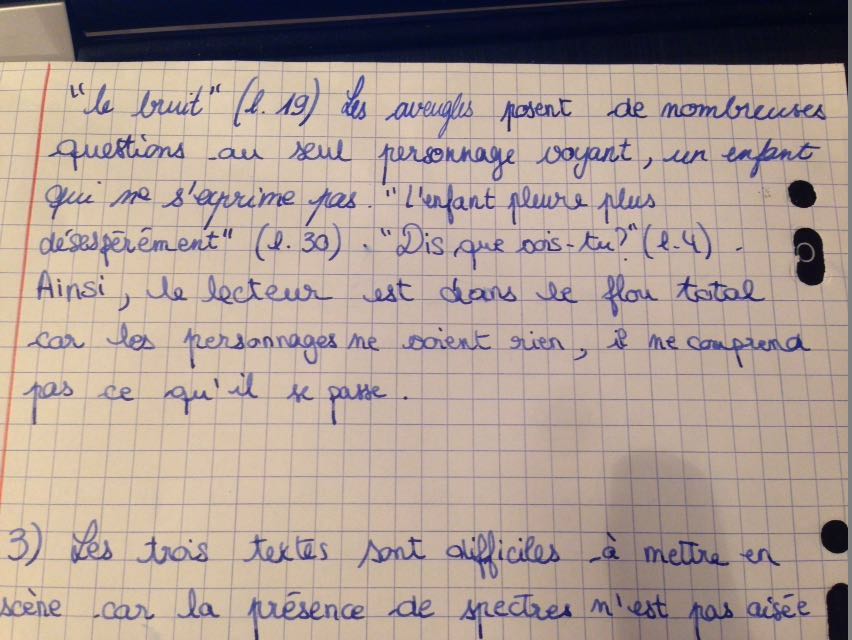 "le bruit" (l. 19) Les aveugles posent de nombreuses
questions au seul personnage voyant, un enfant
qui ne s'exprime pas. "L'enfant pleure plus
désespérément" (l. 30). "Dis, que vois-tu?" (l. 4).
Ainsi, le lecteur est dans le flou total
car les personnages ne voient rien, il ne comprend
pas ce qu'il se passe.
3) Les trois textes sont difficiles à mettre en
scène car la présence de spectres n'est pas aisée